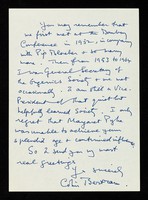 You may remember that
we first met at the Bombay
Conference in 1952, in company
with Pip Blacker & so many
more. Then from 1957 to 1964
I was General Secretary of
the Eugenics Society & we met
occasionally. I am still a Vice-
President of that quiet but
helpfully learned Society. I only
regret that Margaret Pyke
was unable to achieve your
splendid age & continued
So I send you my most
real greetings
Yrs sincerely
Colin Bertram.